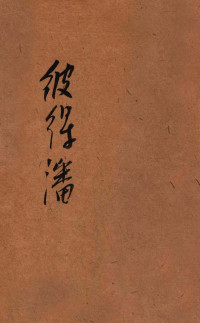 彼得潘